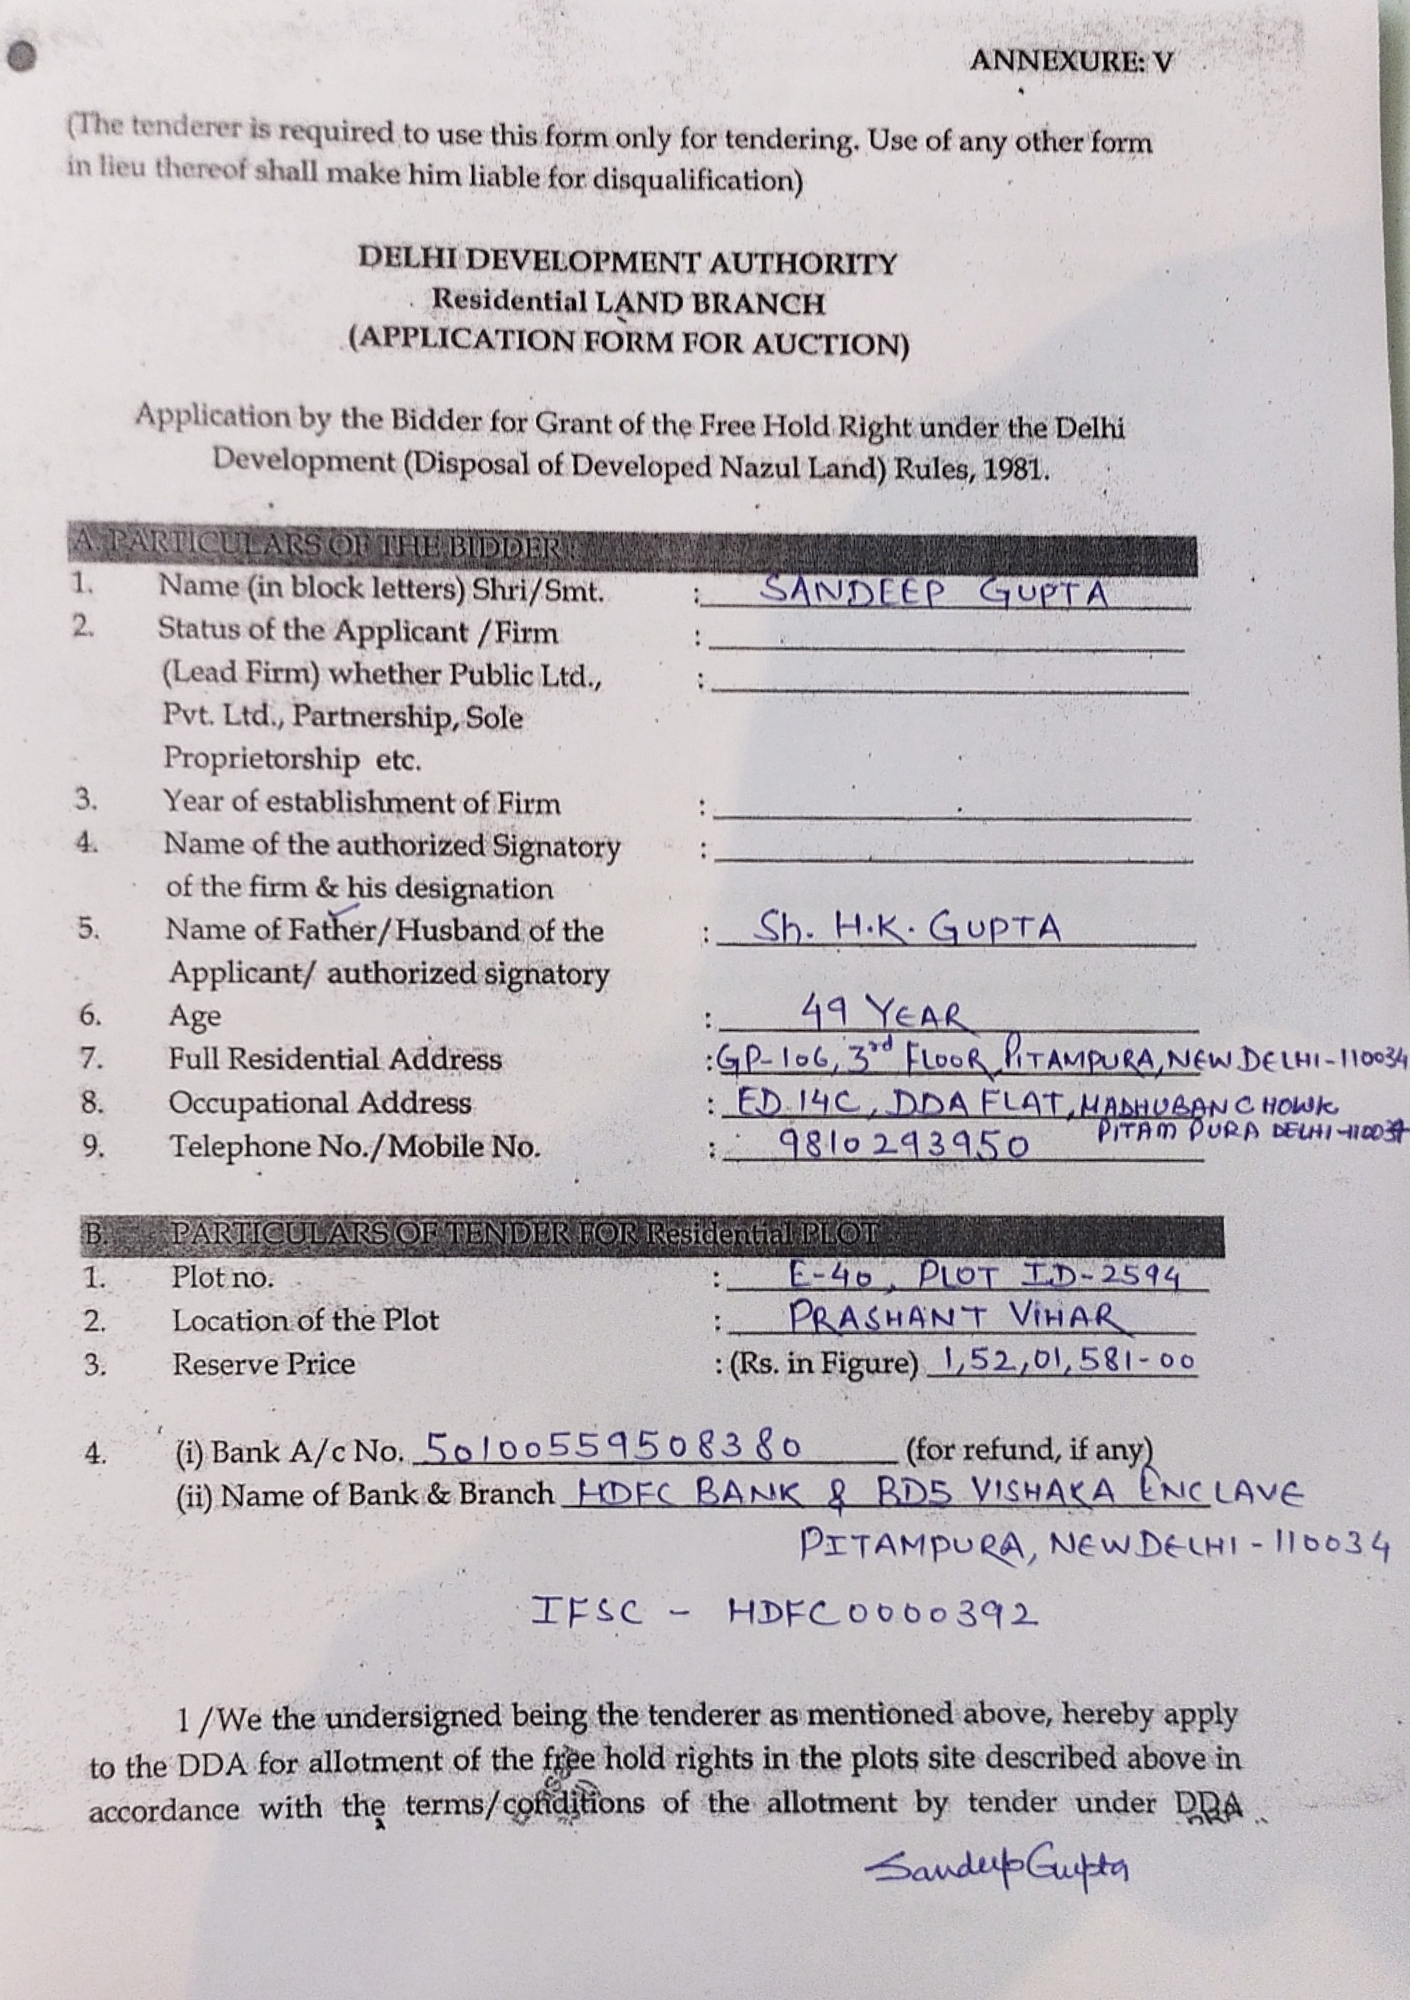 ANNEXURE: V
(The tenderer is required to use this form only for tendering. Use of any other form
in lieu thereof shall make him liable for disqualification)
DELHI DEVELOPMENT AUTHORITY
Residential LAND BRANCH
(APPLICATION FORM FOR AUCTION)
Application by the Bidder for Grant of the Free Hold Right under the Delhi
Development (Disposal of Developed Nazul Land) Rules, 1981.
A. PARTICULARS OF THE BIDDER:
1. Name (in block letters) Shri/Smt. : SANDEEP GUPTA
2. Status of the Applicant /Firm :
(Lead Firm) whether Public Ltd., :
Pvt. Ltd., Partnership, Sole
Proprietorship etc.
3. Year of establishment of Firm :
4. Name of the authorized Signatory :
of the firm & his designation
5. Name of Father/Husband of the : Sh. H.K. GUPTA
Applicant/ authorized signatory
6. Age : 49 YEAR
7. Full Residential Address : GP-106, 3rd FLOOR, PITAMPURA, NEW DELHI-110034
8. Occupational Address : ED 14C, DDA FLAT, MADHUBAN CHOWK
PITAM PURA DELHI-110034
9. Telephone No./Mobile No. : 9810293950
B. PARTICULARS OF TENDER FOR Residential PLOT
1. Plot no. : E-40, PLOT I.D-2594
2. Location of the Plot : PRASHANT VIHAR
3. Reserve Price : (Rs. in Figure) 1,52,01,581-00
4. (i) Bank A/c No. 50100559508380 (for refund, if any)
(ii) Name of Bank & Branch HDFC BANK & BD5 VISHAKA ENCLAVE
PITAMPURA, NEW DELHI - 110034
IFSC - HDFC0000392
1/We the undersigned being the tenderer as mentioned above, hereby apply
to the DDA for allotment of the free hold rights in the plots site described above in
accordance with the terms/conditions of the allotment by tender under DDA
Sandeep Gupta